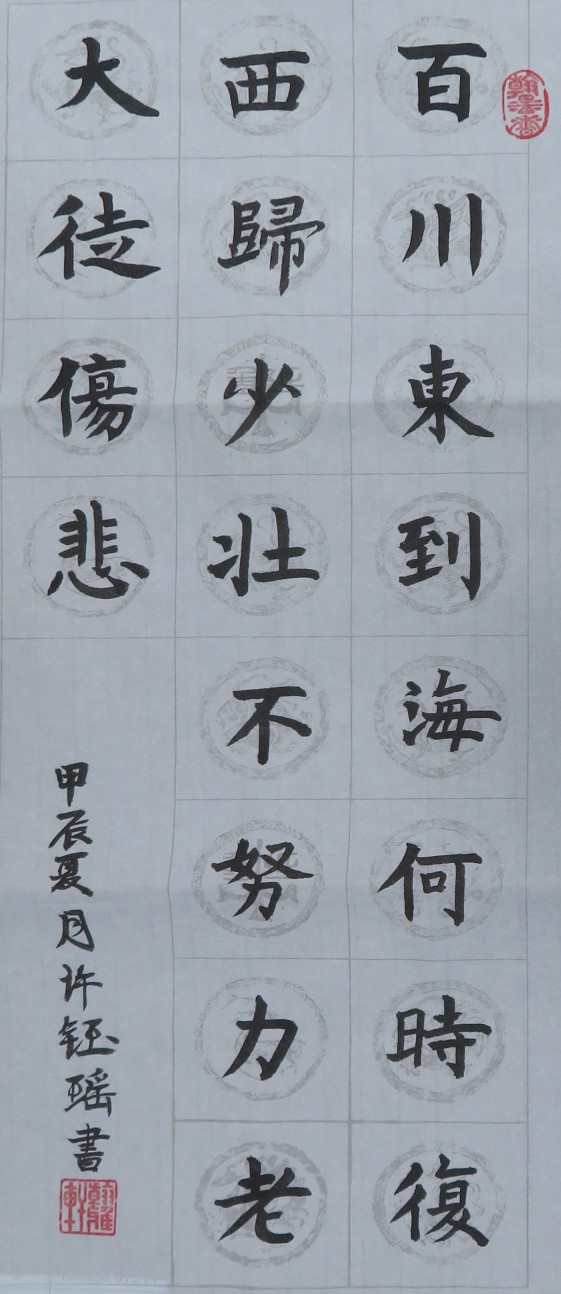 翰墨香
百川東到海何時復
西歸少壮不努力老
大徒傷悲
甲辰夏月许钰瑶書